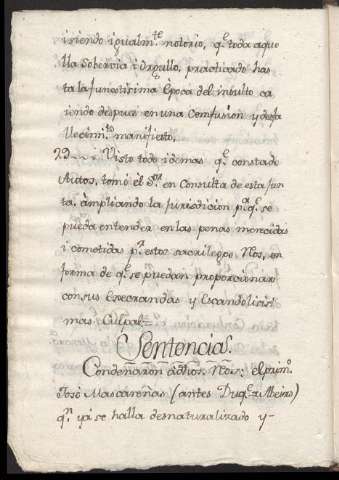 isiendo igualm.te notorio, q.e toda aque
lla Sobervia i Orgullo, practicado has
ta la funestisima Epoca del insulto ca
iendo despues en una Comfusion y desfa
llecim.to manifiesto.
29 Visto todo idemas q.e constade
Auttos, tomó el S.or en Consulta de esta Jun
ta, ampliando la Jurisdicion p.a q.e se
pueda entender en las penas merecidas
i cometidas p.r estos sacrilegos Reos, en
forma de q.e se puedan proporcionar
con sus Execrandas y Escandolisisi
mas Culpas.
Sentencia.
Condeñaron adhos. Reos: el prim.o
José Mascareñas (antes Duq.e Abeiro)
q.e yá se halla desnaturalizado y-